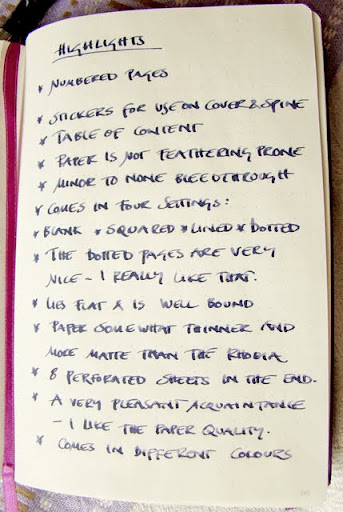 HIGHLIGHTS
* NUMBERED PAGES
* STICKERS FOR USE ON COVER & SPINE
* TABLE OF CONTENT
* PAPER IS NOT FEATHERING PRONE
* MINOR TO NONE BLEEDTHROUGH
* COMES IN FOUR SETTINGS:
* BLANK * SQUARED * LINED * DOTTED
* THE DOTTED PAGES ARE VERY
NICE - I REALLY LIKE THAT.
* LIES FLAT & IS WELL BOUND
* PAPER SOMEWHAT THINNER AND
MORE MATTE THAN THE RHODIA
* 8 PERFORATED SHEETS IN THE END.
* A VERY PLEASANT ACQUAINTANCE
- I LIKE THE PAPER QUALITY.
* COMES IN DIFFERENT COLOURS